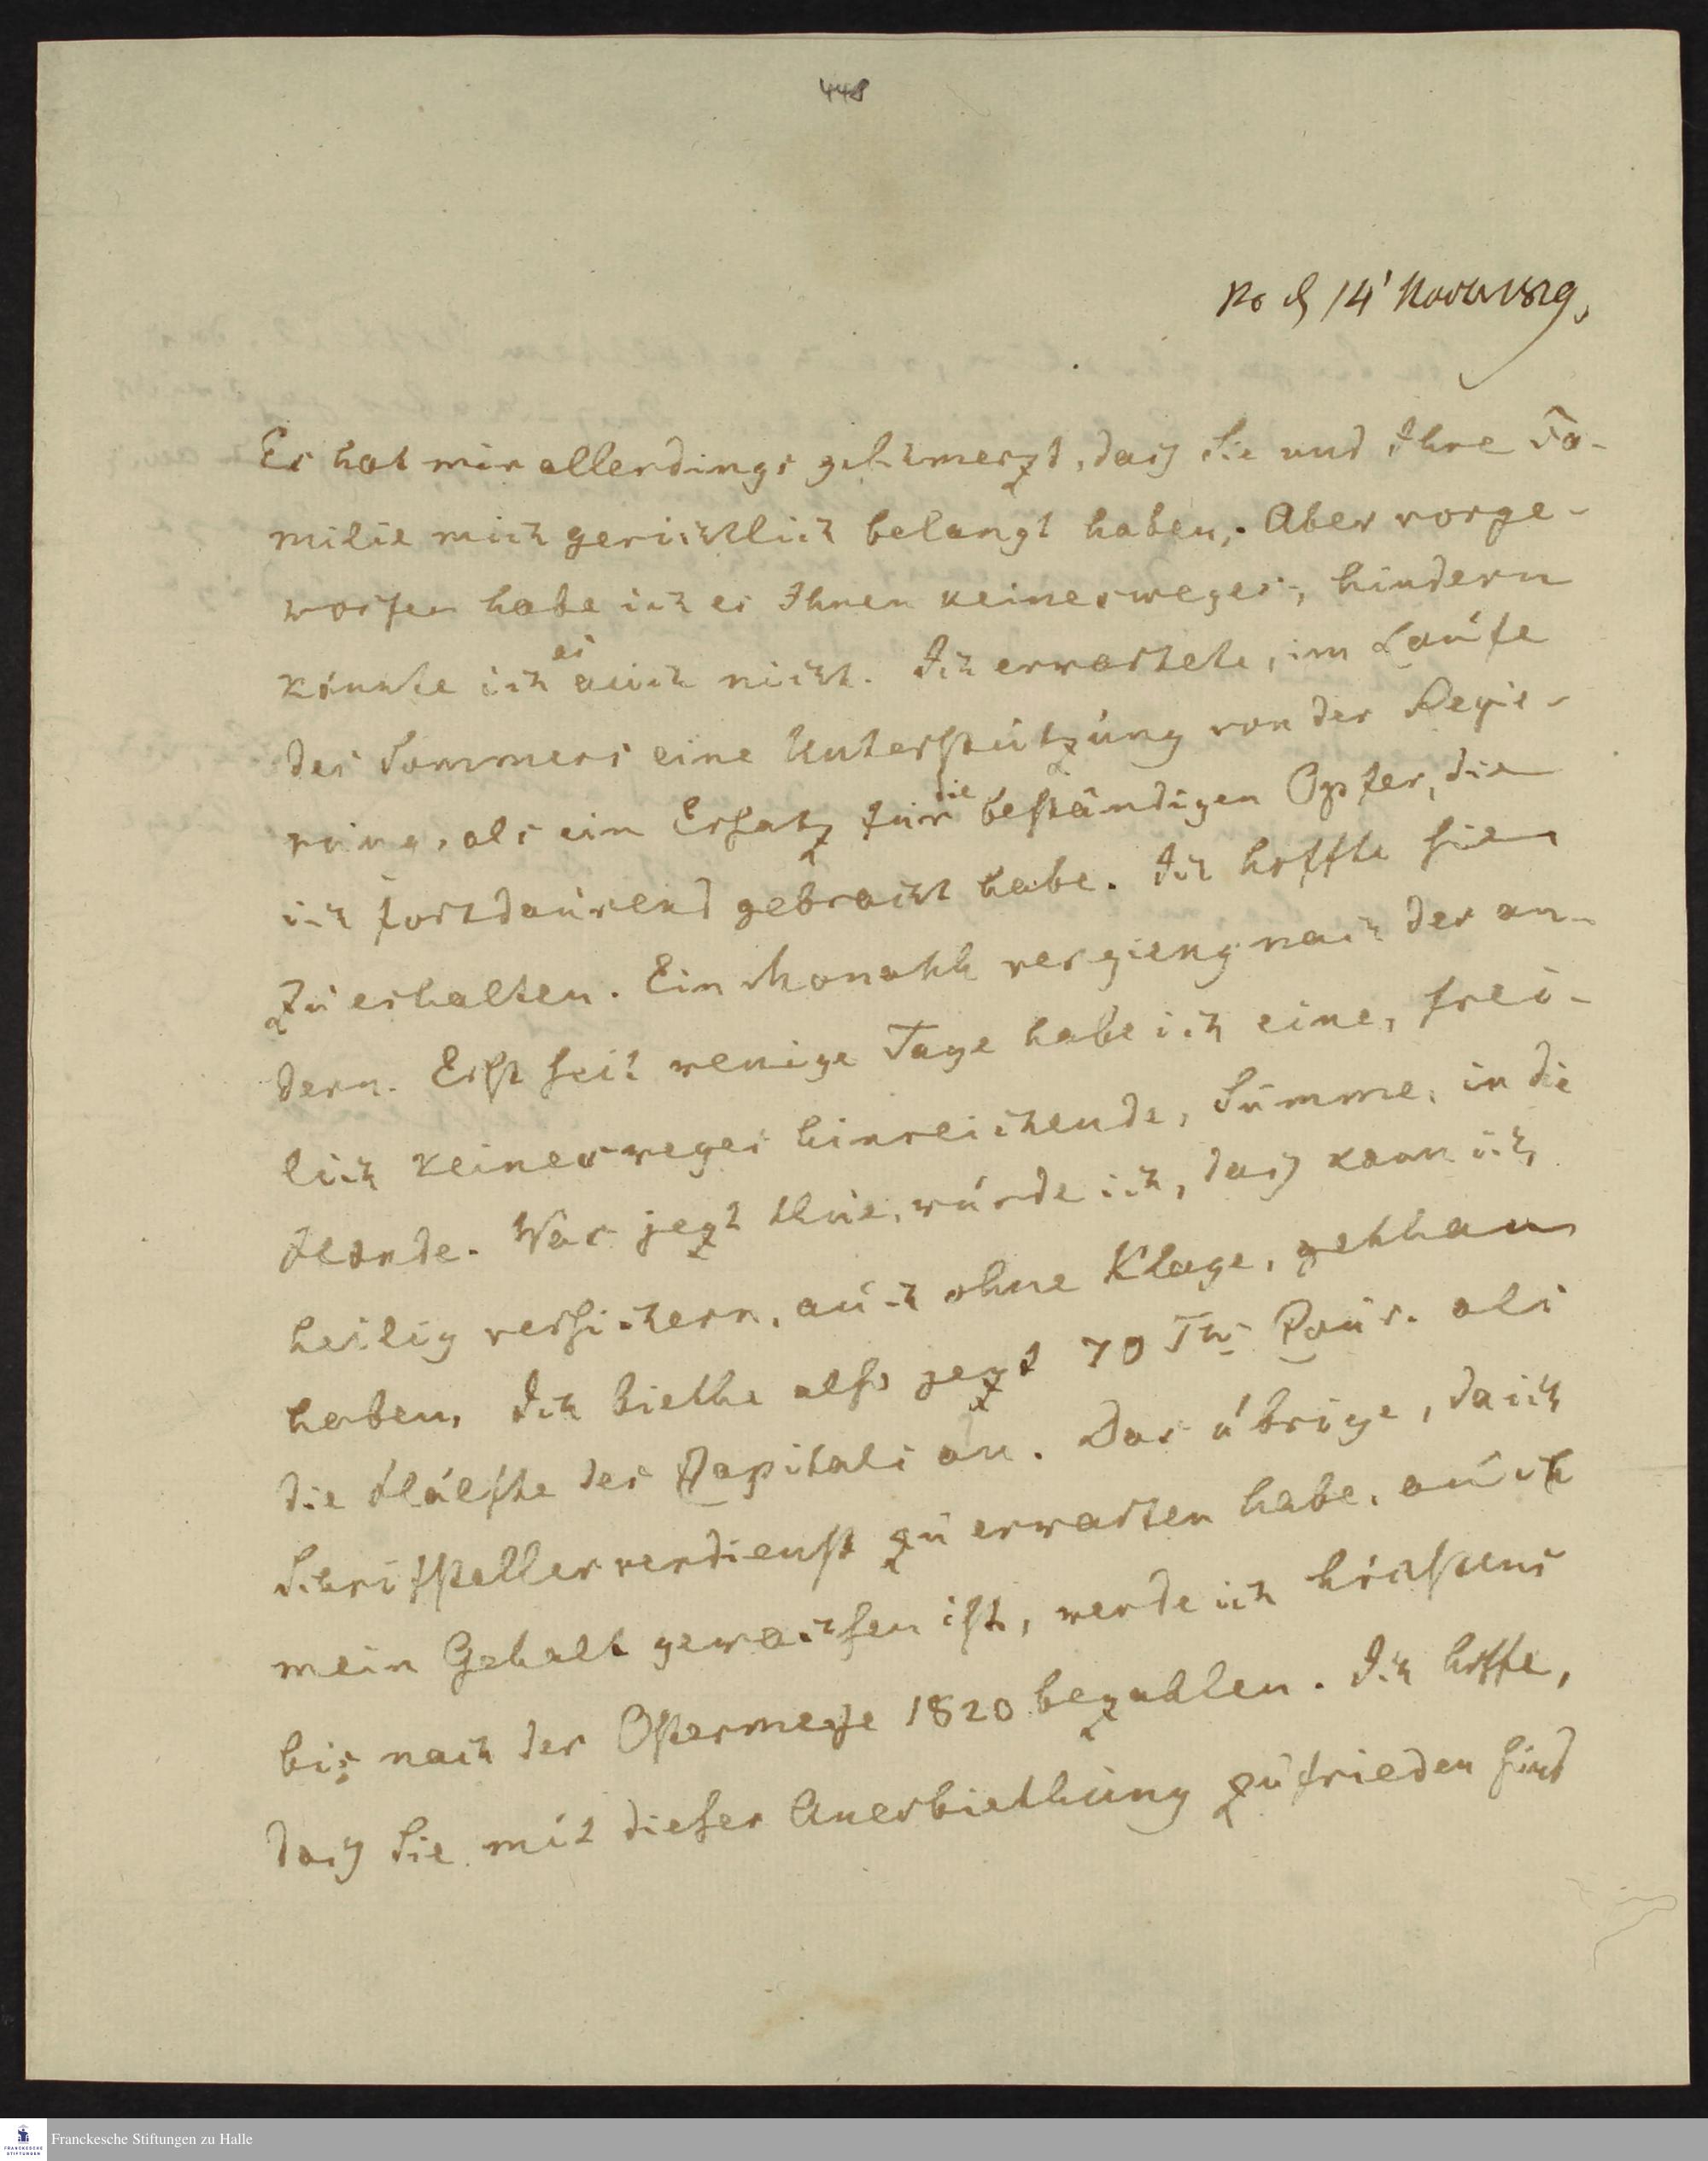 448
14' Novbr 1819,
Es hat mir allerdings geschmerzt, daß Sie und Ihre Fa-
milie mich gerichtlich belangt haben,. Aber vorge-
worfen habe ich es Ihnen keinesweges, hindern
konnte ich es auch nicht. Ich erwartete, im Laufe
des Sommers eine Unterstützung von der Regie-
rung, als ein Ersatz für die beständigen Opfer, die
ich fortdaurend gebracht habe. Ich hoffte sie
zu erhalten. Ein Monath vergieng nach der an-
dern. Erst seit wenige Tage habe ich eine, frei-
lich keinesweges hinreichende, Summe, in die
Hände. Was jezt thue, würde ich, daß kann ich
heilig versichern, auch ohne Klage, gethan
haben, Ich biethe also jezt 70 Thr Cour. als
die Hälfte des Capitals an. Das übrige, da ich
Schriftstellerverdienst zu erwarten habe, auch
mein Gehalt gewachsen ist, werde ich höchstens
bis nach der Ostermesse 1820 bezahlen. Ich hoffe,
daß Sie mit dieser Anerbiethung zufrieden sind
Franckesche Stiftungen zu Halle
FRANCKESCHE
STIFTUNGEN